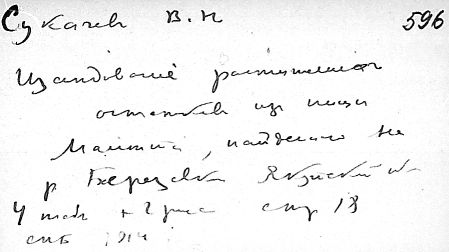 Сукачев В.Н 596
Изслѣдованіе растительных
остатков из пищи
мамонта, найденного на
р Березовке Якутской
4 табл + 2 рис стр 18
спб 1914